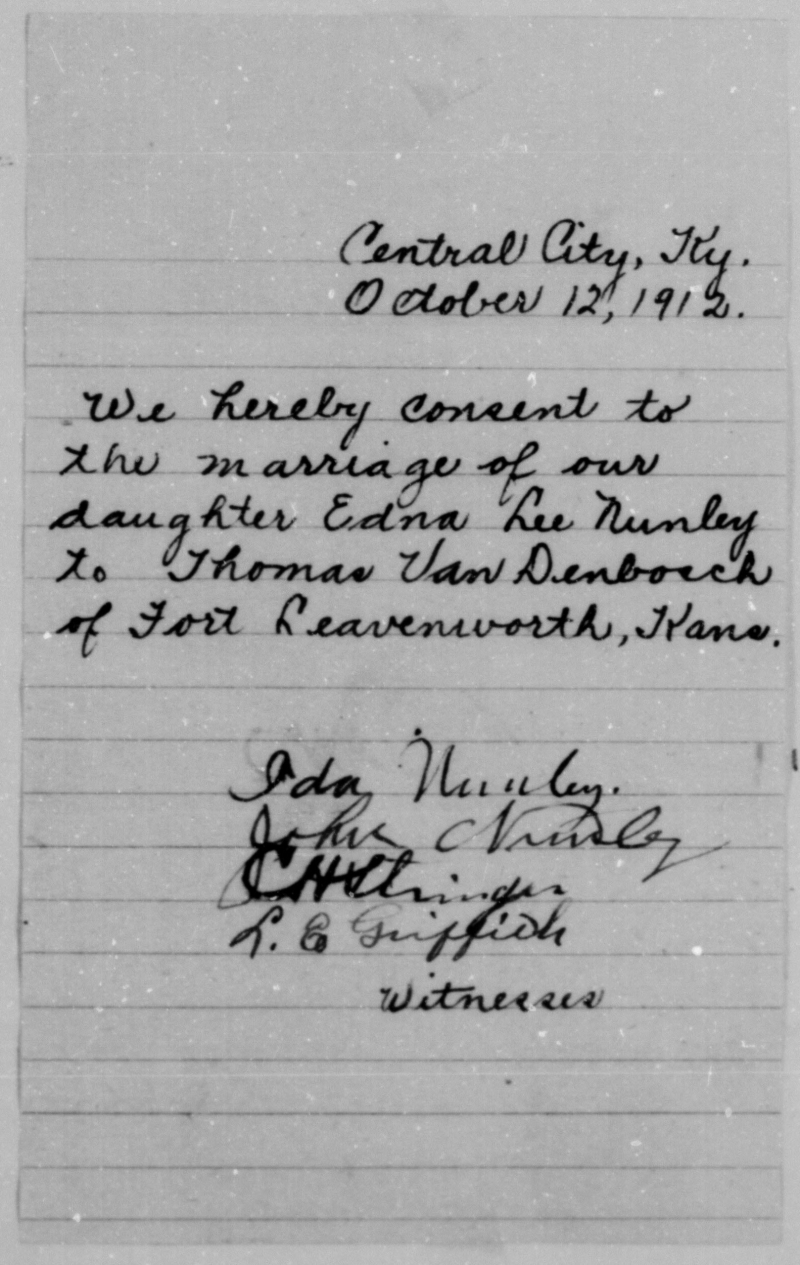 Central City, Ky.
October 12, 1912.
We hereby consent to
the marriage of our
daughter Edna Lee Nunley
to Thomas Van Denbosch
of Fort Leavenworth, Kans.
Ida Nunley.
John Nunley
C H Stringer
L. E Griffith
Witnesses